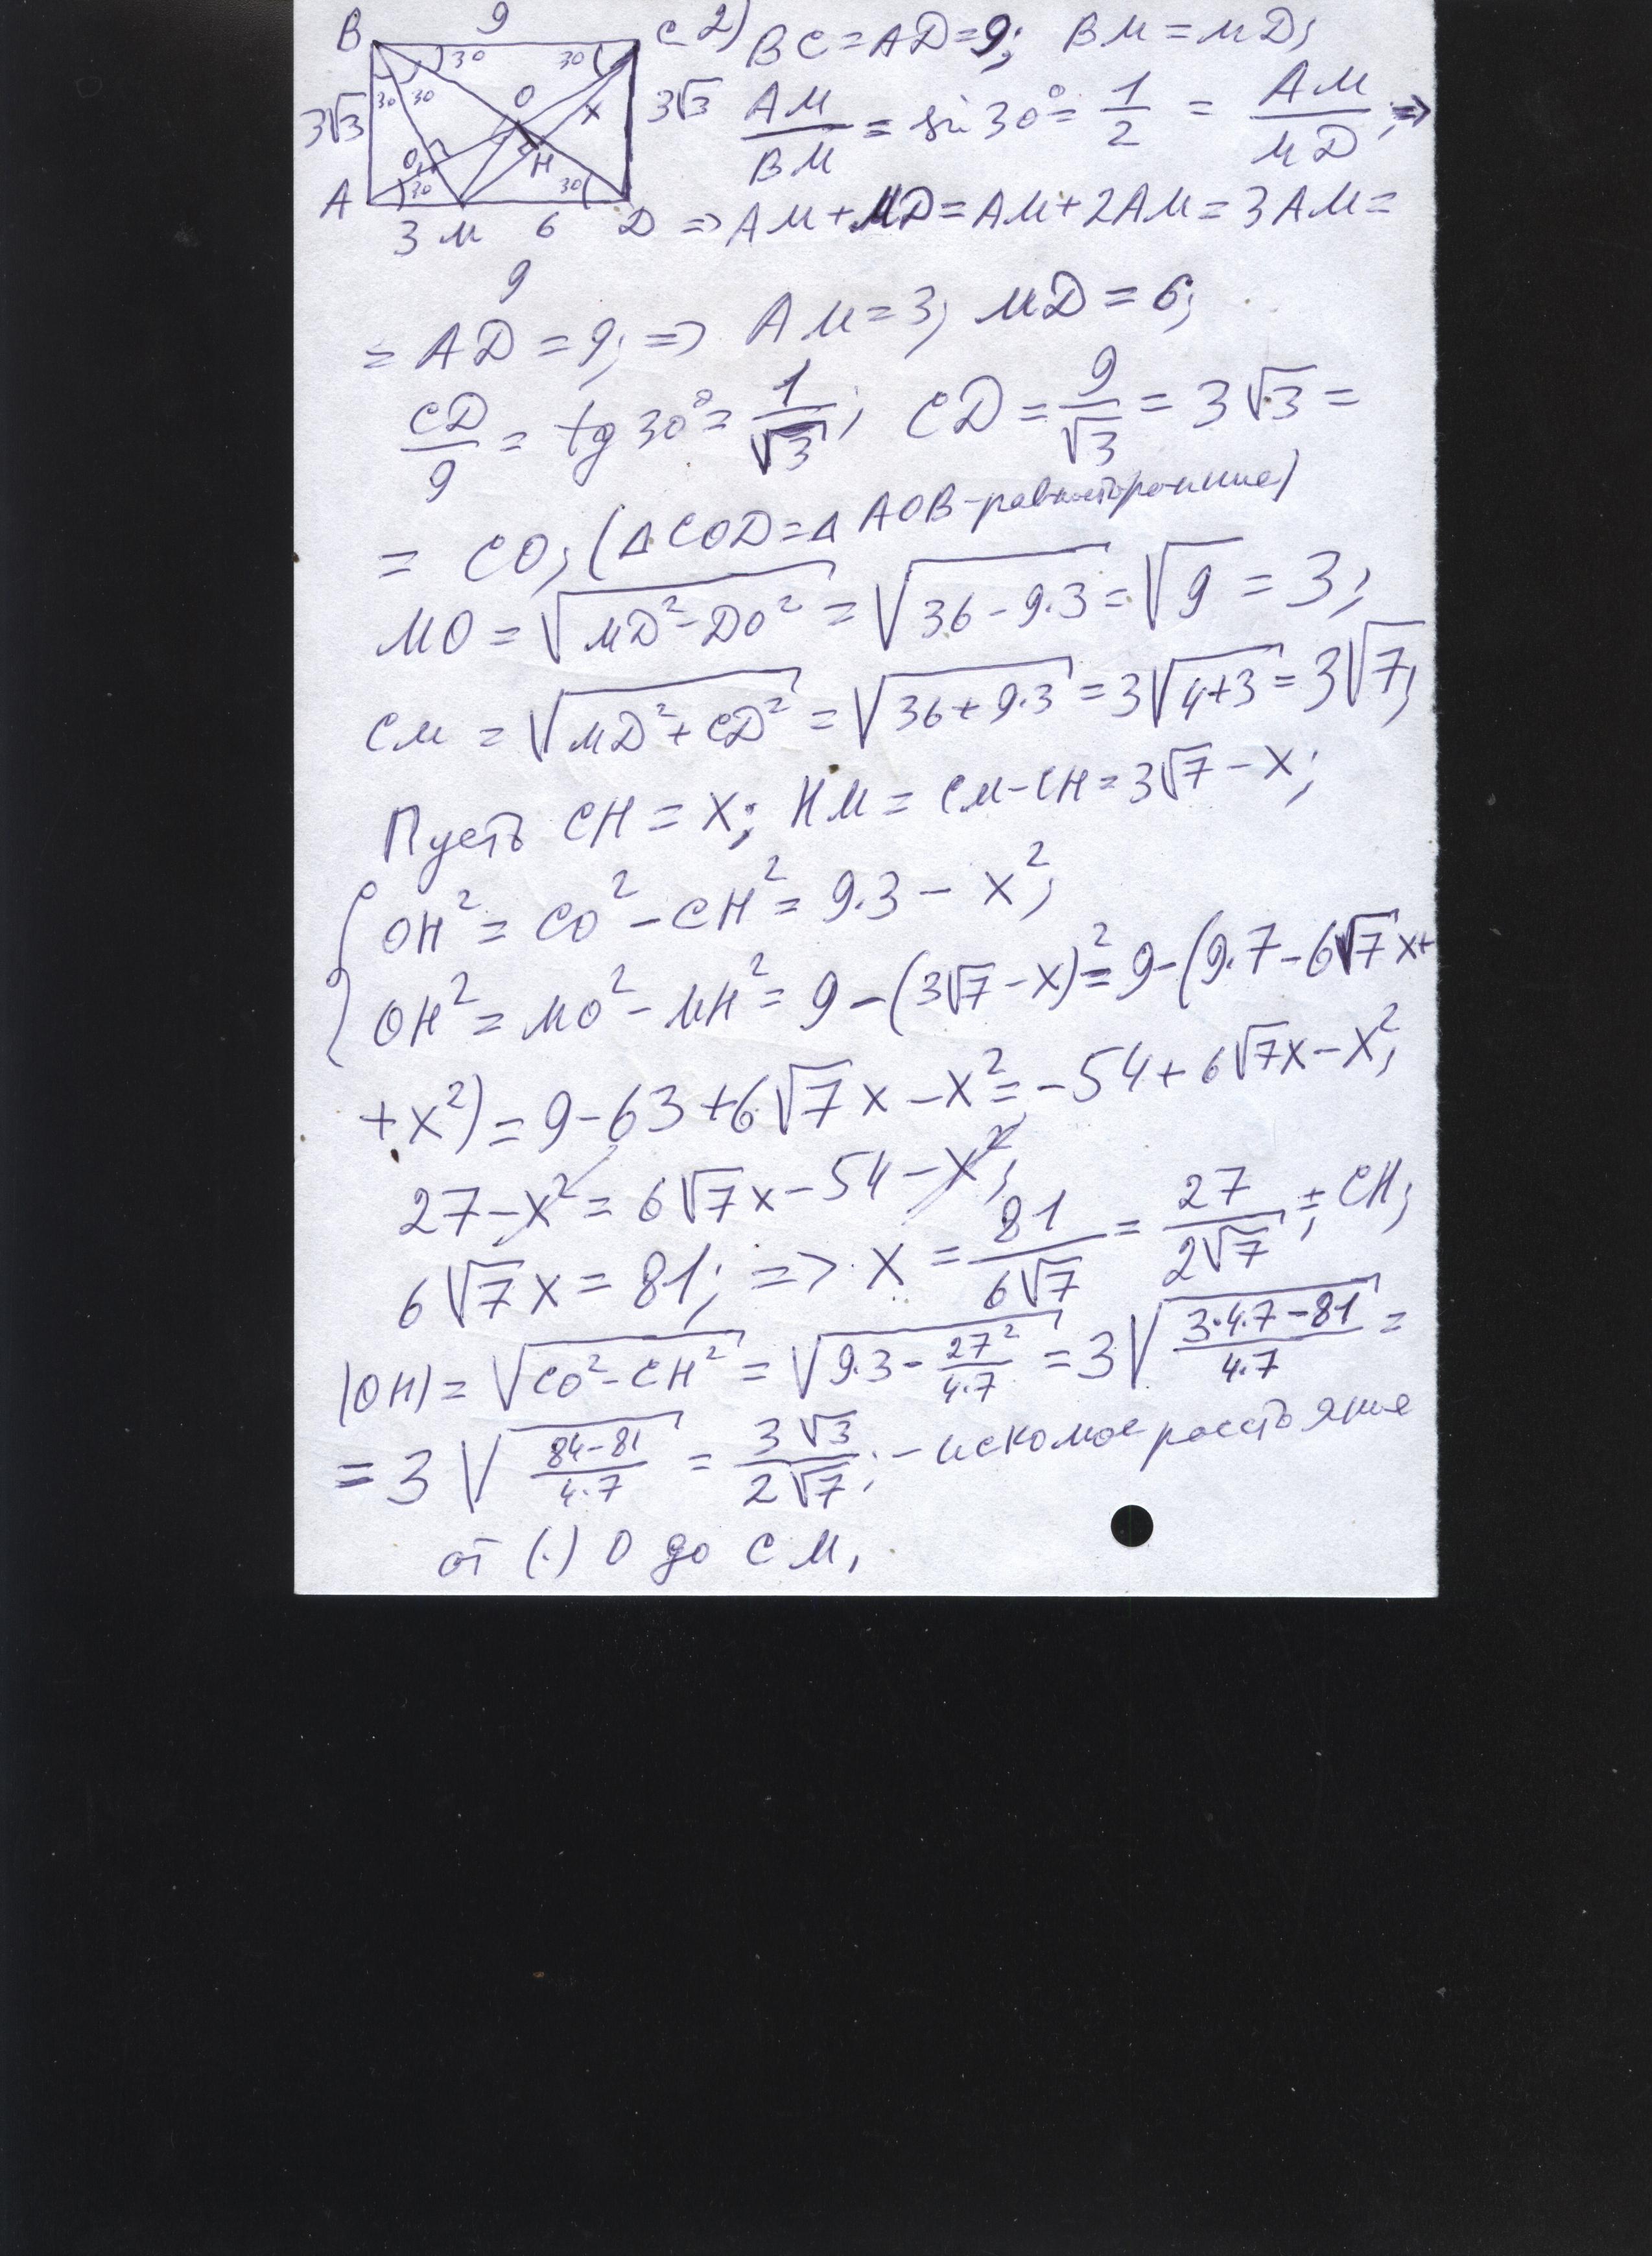 B 9 C 2) BC = AD = 9; BM = MD;
30 30
3√3 30 30 O x 3√3 AM/BM = sin 30° = 1/2 = AM/MD; =>
O₁ H
A 30 30
3 M 6 D => AM + MD = AM + 2AM = 3AM =
9
= AD = 9; => AM = 3; MD = 6;
CD/9 = tg 30° = 1/√3; CD = 9/√3 = 3√3 =
= CO; (ΔCOD = ΔAOB - равносторонние)
MO = √(MD² - DO²) = √(36 - 9·3) = √9 = 3;
CM = √(MD² + CD²) = √(36 + 9·3) = 3√(4+3) = 3√7;
Пусть CH = x; HM = CM - CH = 3√7 - x;
{ OH² = CO² - CH² = 9·3 - x²;
OH² = MO² - MH² = 9 - (3√7 - x)² = 9 - (9·7 - 6√7x +
+ x²) = 9 - 63 + 6√7x - x² = -54 + 6√7x - x²;
27 - x² = 6√7x - 54 - x²;
6√7x = 81; => x = 81/(6√7) = 27/(2√7); = CH;
|OH| = √(CO² - CH²) = √(9·3 - 27²/(4·7)) = 3√((3·4·7 - 81)/(4·7)) =
= 3√((84-81)/(4·7)) = 3√3/(2√7); - искомое расстояние
от (·) O до CM.